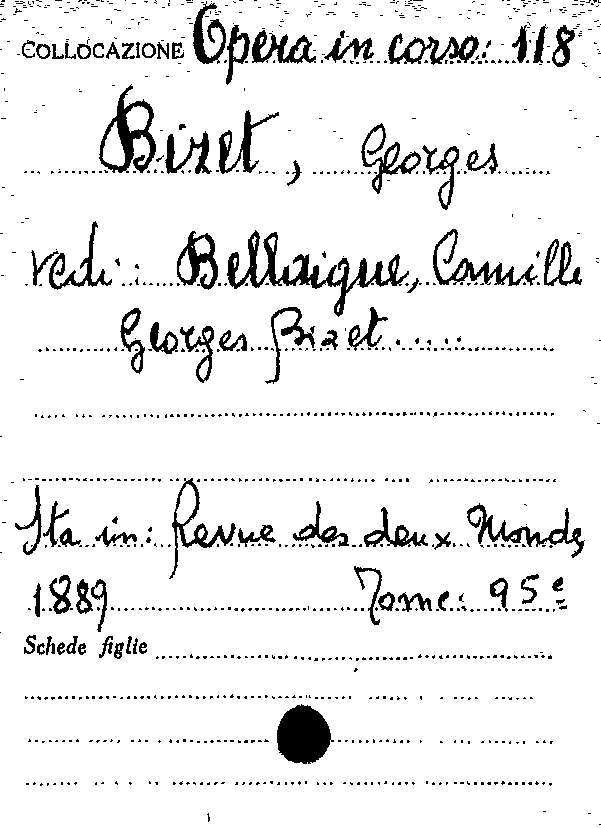 COLLOCAZIONE Opera in corso: 118
Bizet, Georges
vedi: Bellaigue, Camille
Georges Bizet.....
Sta in: Revue des deux Mondes
1889 Tome: 95e
Schede figlie